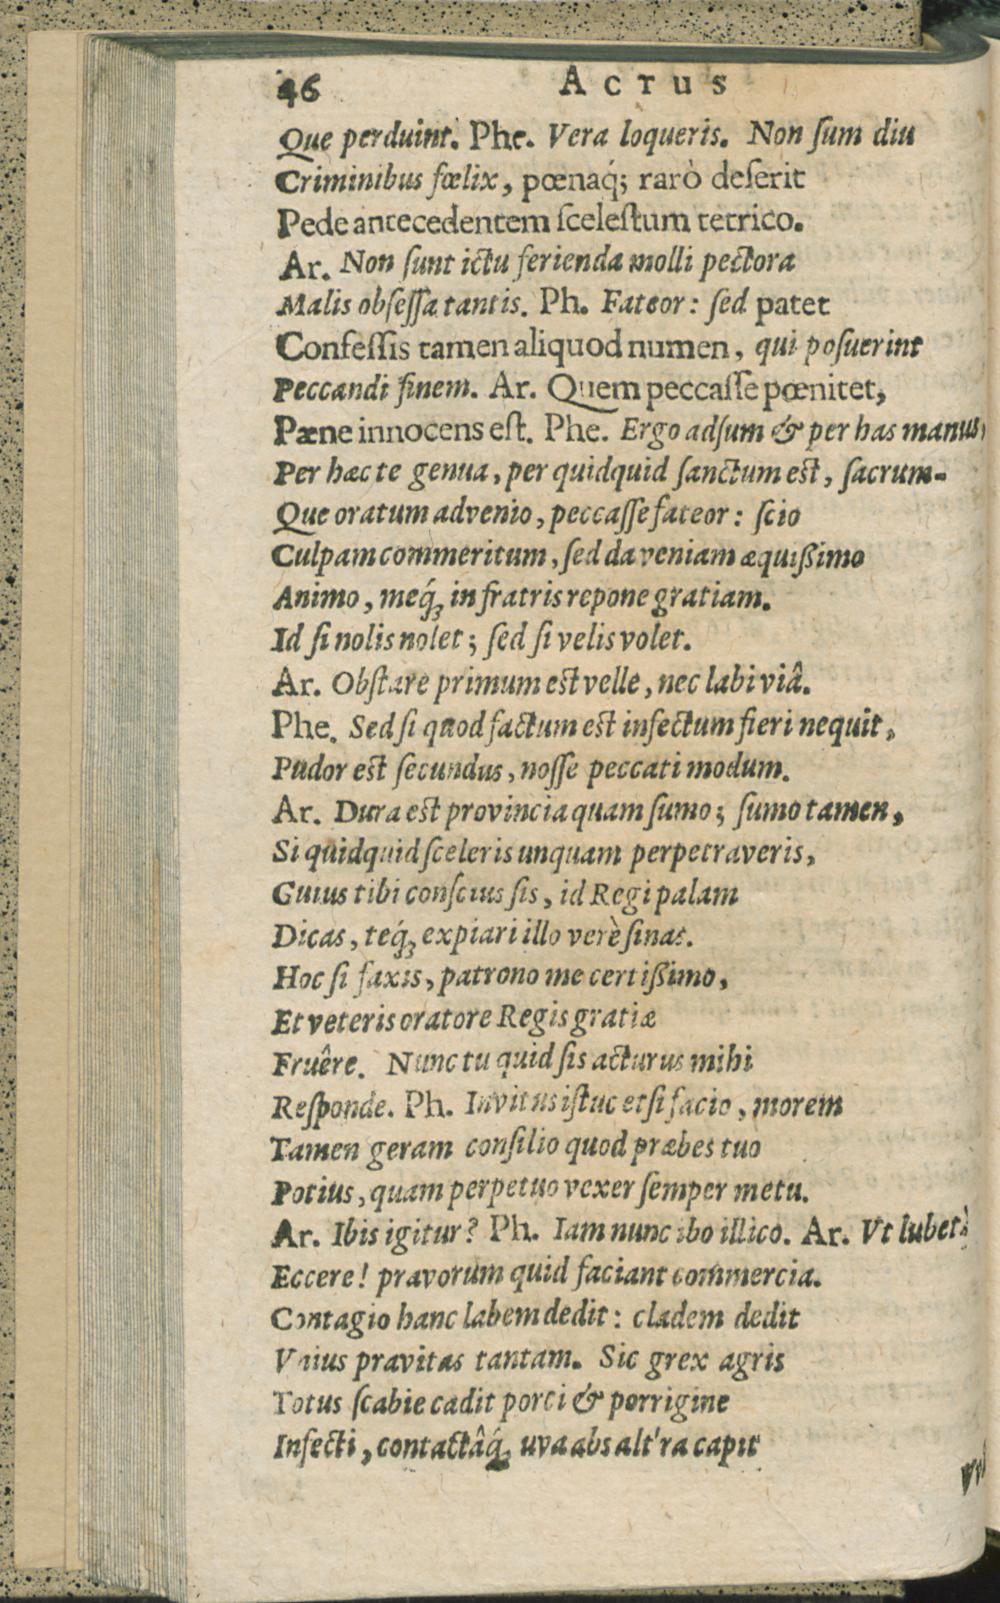 46 ACTUS
Que perduint. Phe. Vera loqueris. Non ſum diu
Criminibus fœlix, pœnaq́; rarò deſerit
Pede antecedentem ſceleſtum tetrico.
Ar. Non ſunt ictu ferienda molli pectora
Malis obſeſſa tantis. Ph. Fateor: ſed patet
Confeſſis tamen aliquod numen, qui poſuerint
Peccandi finem. Ar. Quem peccaſſe pœnitet,
Pæne innocens eſt. Phe. Ergo adſum & per has manus,
Per hæc te genua, per quidquid ſanctum eſt, ſacrum-
Que oratum advenio, peccaſſe fateor: ſcio
Culpam commeritum, ſed da veniam æquißimo
Animo, meq́; in fratris repone gratiam.
Id ſi nolis nolet; ſed ſi velis volet.
Ar. Obſtare primum eſt velle, nec labi viâ.
Phe. Sed ſi quod factum est infectum fieri nequit,
Pudor eſt ſecundus, noſſe peccati modum.
Ar. Dura eſt provincia quam ſumo; ſumo tamen,
Si quidquid ſceleris unquam perpetraveris,
Cuius tibi conſcius ſis, id Regi palam
Dicas, teq́; expiari illo verè ſinas.
Hoc ſi faxis, patrono me certißimo,
Et veteris oratore Regis gratiæ
Fruêre. Nunc tu quid ſis acturus mihi
Reſponde. Ph. Invitus iſtuc etſi facio, morem
Tamen geram conſilio quod præbes tuo
Potius, quam perpetuo vexer ſemper metu.
Ar. Ibis igitur? Ph. Iam nunc ibo illico. Ar. Vt lubet;
Eccere! pravorum quid faciant commercia.
Contagio hanc labem dedit: cladem dedit
Vnius pravitas tantam. Sic grex agris
Totus ſcabie cadit porci & porrigine
Infecti, contactâq́; uva abs alt'ra capit